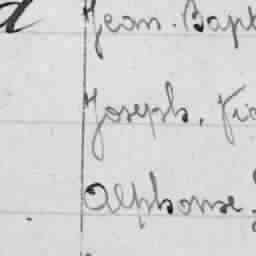 Jean-Bapt
Joseph, Fra
Alphonse,